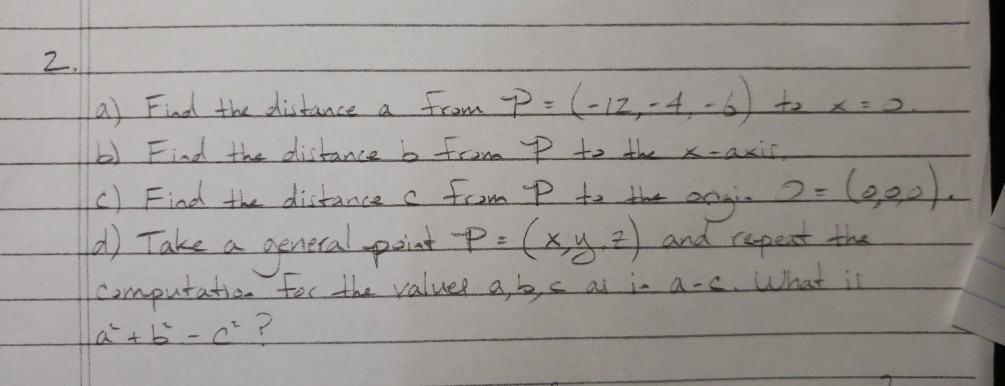 2.
a) Find the distance a from P = (-12, -4, -6) to x = 0.
b) Find the distance b from P to the x-axis.
c) Find the distance c from P to the origin O = (0,0,0).
d) Take a general point P = (x, y, z) and repeat the
computation for the values a, b, c as in a-c. What is
a² + b² - c² ?